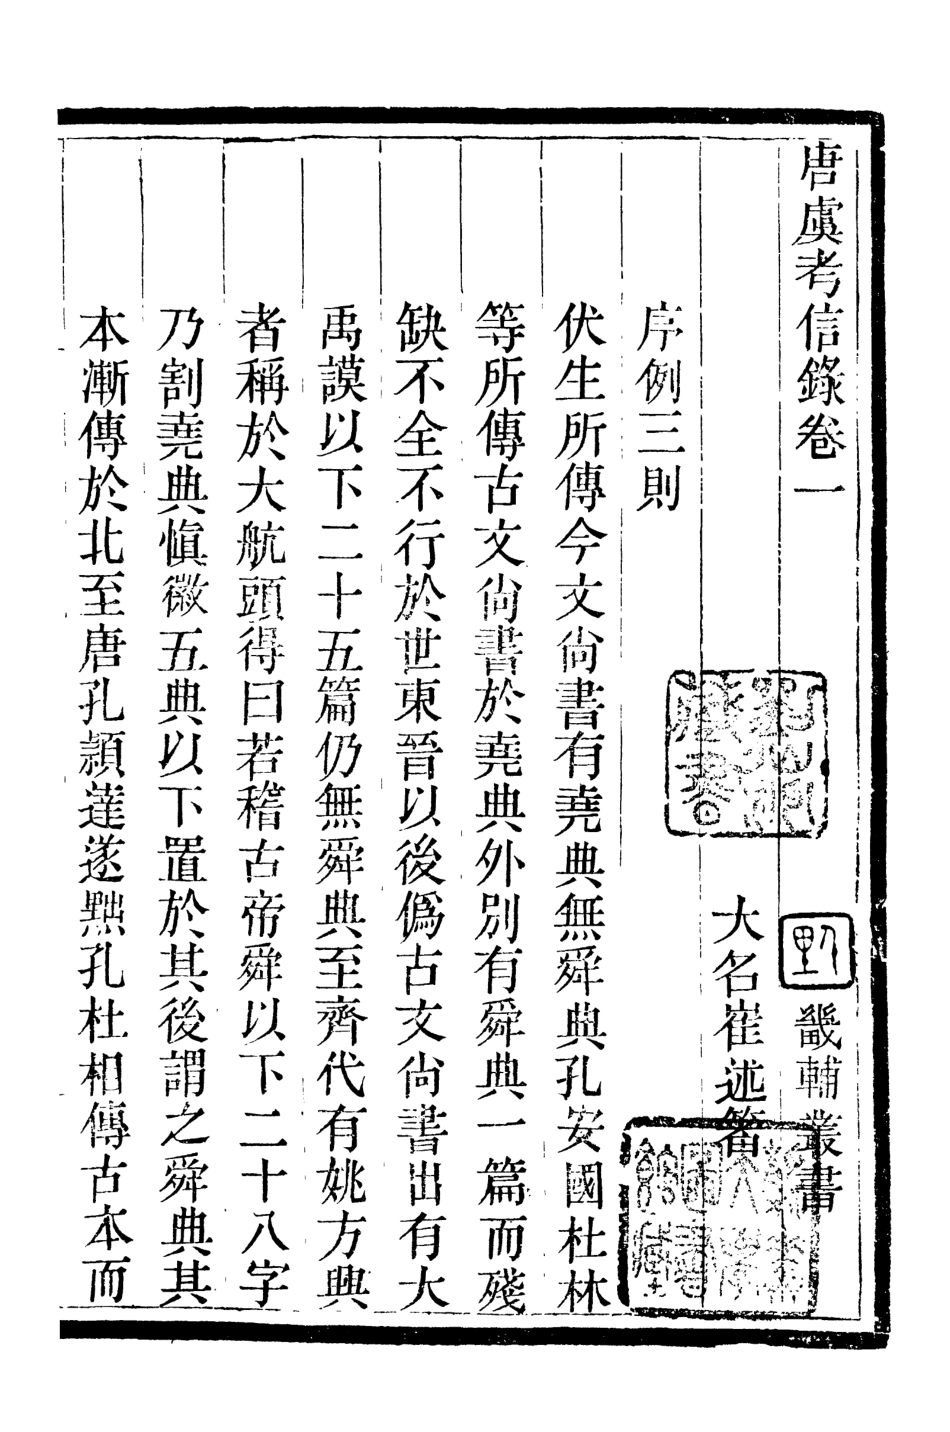 唐虞考信錄卷一
野
畿輔叢書
大名崔述著
序例三則
伏生所傳今文尚書有堯典無舜典孔安國杜林
等所傳古文尚書於堯典外別有舜典一篇而殘
缺不全不行於世東晉以後僞古文尚書出有大
禹謨以下二十五篇仍無舜典至齊代有姚方興
者稱於大航頭得曰若稽古帝舜以下二十八字
乃割堯典愼徽五典以下置於其後謂之舜典其
本漸傳於北至唐孔穎達遂黜孔杜相傳古本而